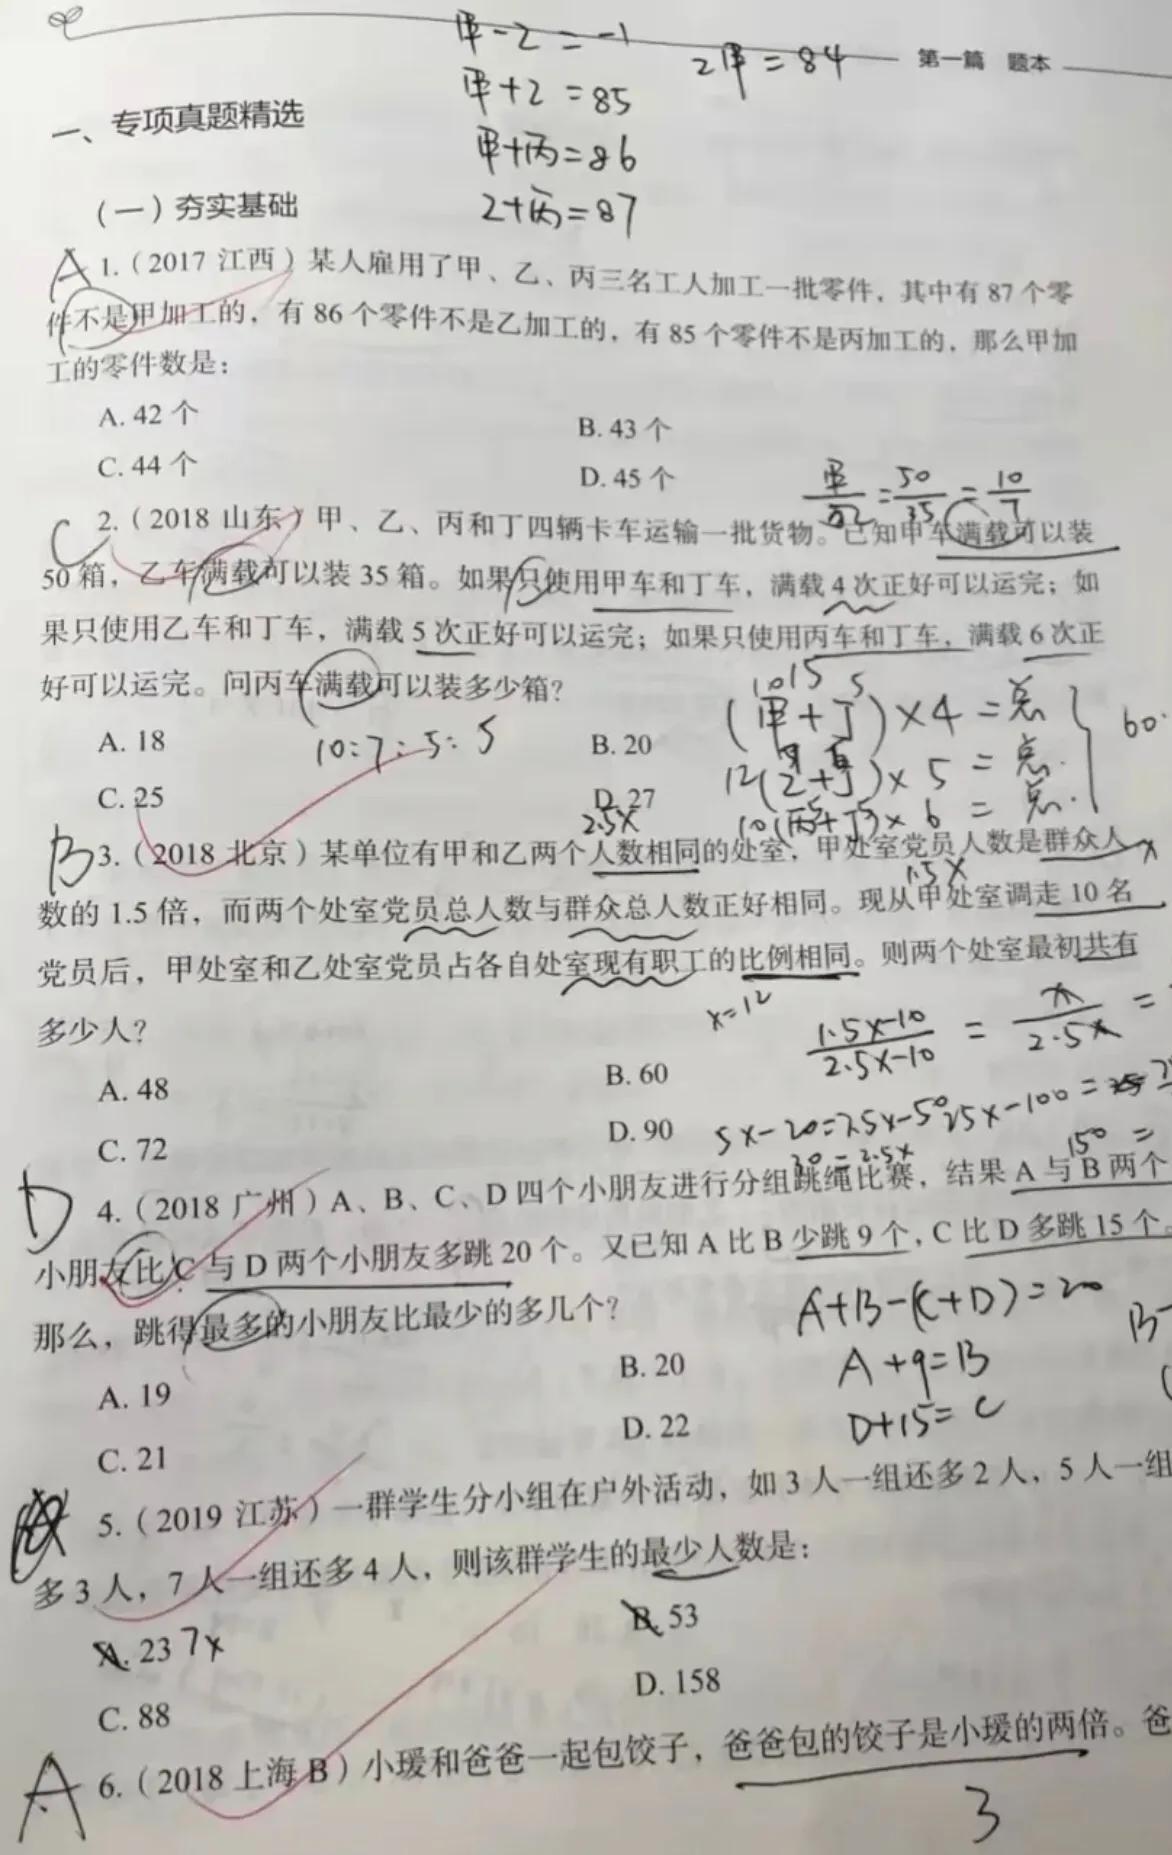 甲-乙=-1
2甲=84
第一篇 题本
甲+乙=85
一、专项真题精选
甲+丙=86
(一)夯实基础
乙+丙=87
A 1.(2017 江西)某人雇用了甲、乙、丙三名工人加工一批零件，其中有 87 个零
件不是甲加工的，有 86 个零件不是乙加工的，有 85 个零件不是丙加工的，那么甲加
工的零件数是：
A. 42 个
B. 43 个
C. 44 个
D. 45 个
甲/乙=50/35=10/7
C 2.(2018 山东)甲、乙、丙和丁四辆卡车运输一批货物。已知甲车满载可以装
50 箱，乙车满载可以装 35 箱。如果只使用甲车和丁车，满载 4 次正好可以运完；如
果只使用乙车和丁车，满载 5 次正好可以运完；如果只使用丙车和丁车，满载 6 次正
好可以运完。问丙车满载可以装多少箱？
10 15 5
(甲+丁)×4=总
60
A. 18
10:7:5:5
B. 20
12(乙+丁)×5=总
C. 25
D. 27
10(丙+丁)×6=总
2.5x
B 3.(2018 北京)某单位有甲和乙两个人数相同的处室，甲处室党员人数是群众人
x
1.5x
数的 1.5 倍，而两个处室党员总人数与群众总人数正好相同。现从甲处室调走 10 名
党员后，甲处室和乙处室党员占各自处室现有职工的比例相同。则两个处室最初共有
多少人？
x=12
1.5x-10/2.5x-10=x/2.5x=
A. 48
B. 60
C. 72
D. 90
5x-20=7.5x-50
25x-100=
30=2.5x
150=
D 4.(2018 广州)A、B、C、D 四个小朋友进行分组跳绳比赛，结果 A 与 B 两个
小朋友比 C 与 D 两个小朋友多跳 20 个。又已知 A 比 B 少跳 9 个，C 比 D 多跳 15 个。
那么，跳得最多的小朋友比最少的多几个？
A+B-(C+D)=20
B-
A. 19
B. 20
A+9=B
C. 21
D. 22
D+15=C
5.(2019 江苏)一群学生分小组在户外活动，如 3 人一组还多 2 人，5 人一组
多 3 人，7 人一组还多 4 人，则该群学生的最少人数是：
A. 23 7x
B. 53
C. 88
D. 158
A 6.(2018 上海 B)小瑗和爸爸一起包饺子，爸爸包的饺子是小瑗的两倍。爸
3